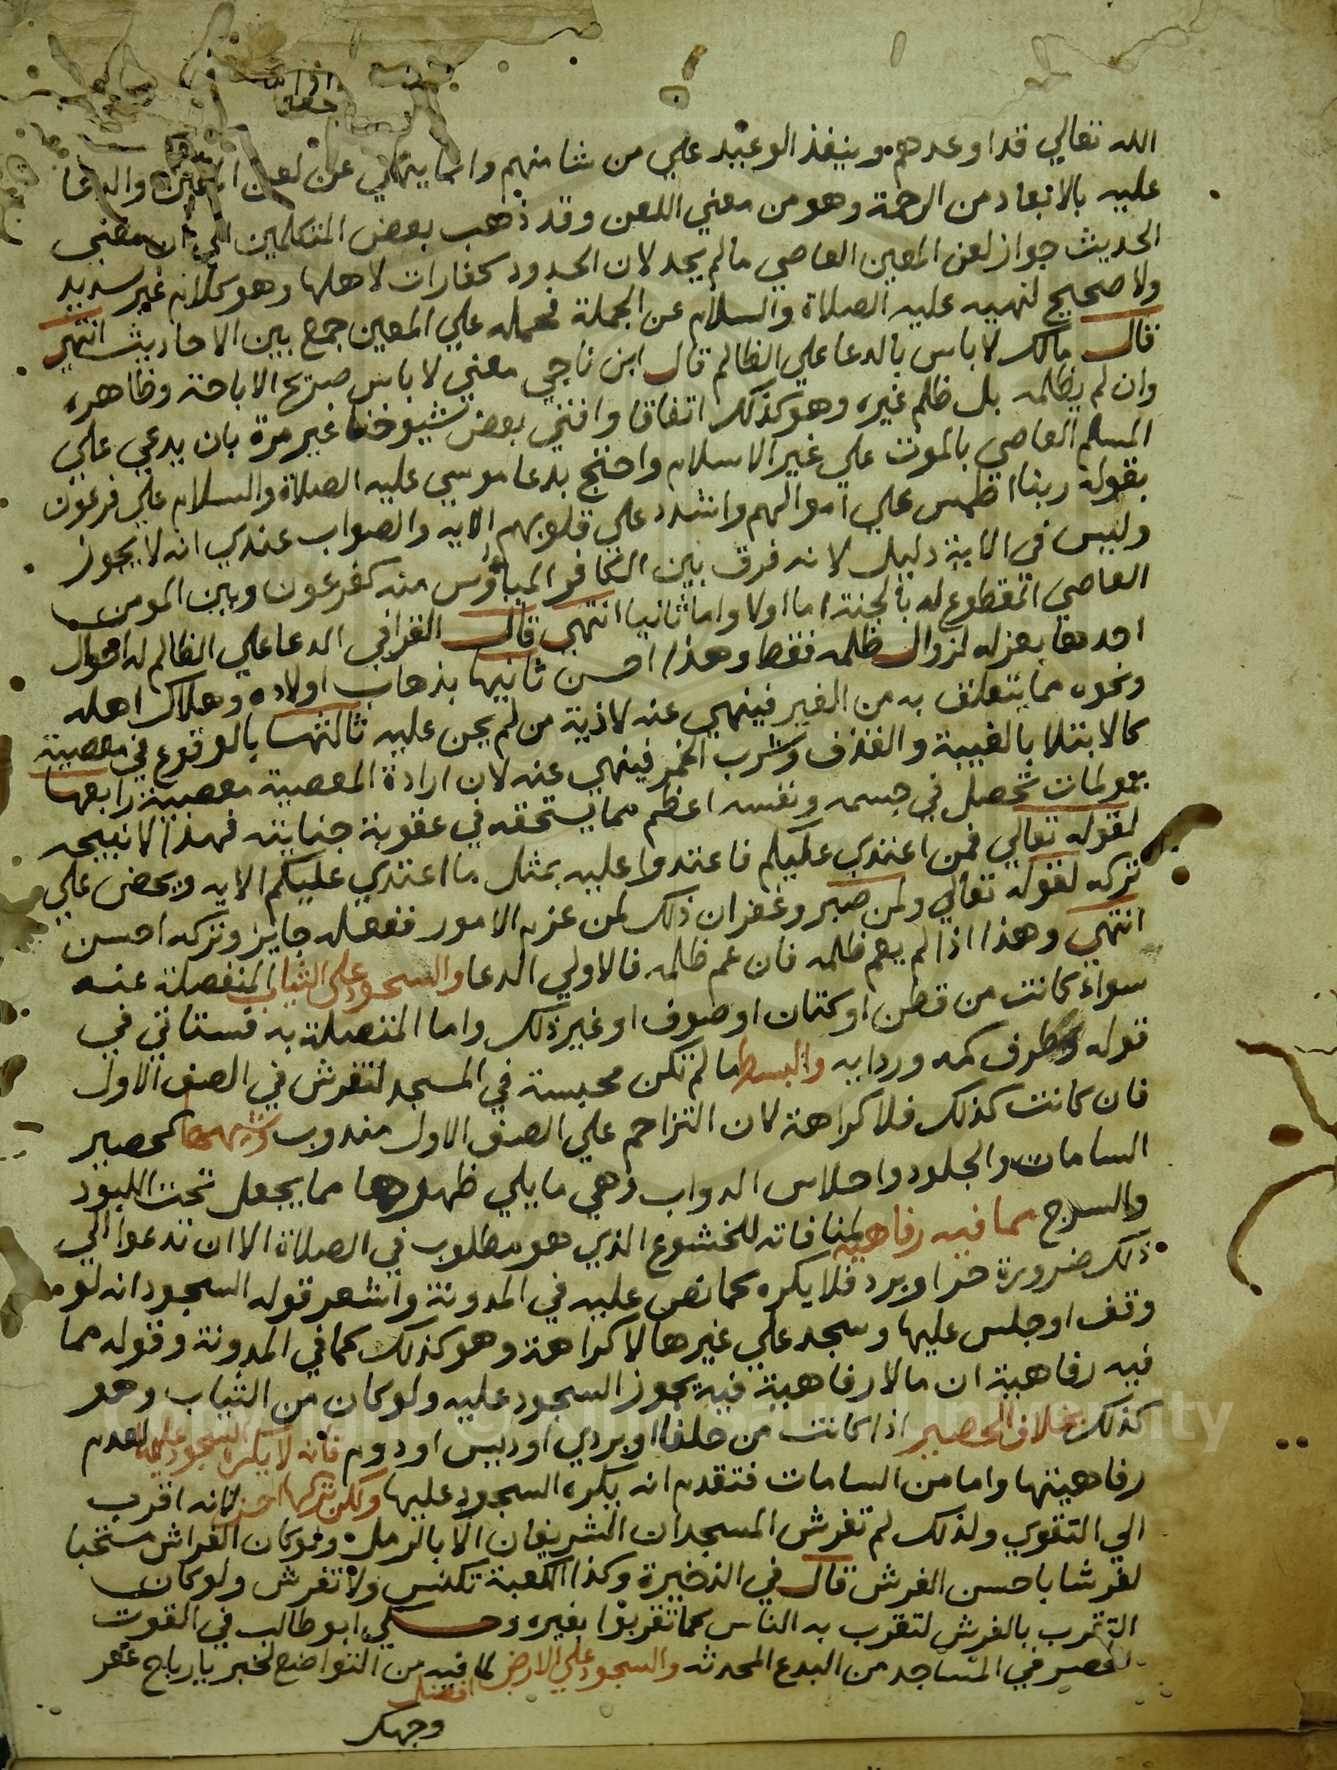 الله تعالي قد اوعدهم وينفذ الوعيد علي من شا منهم وانما ينهي عن لعن المعين والدعا
عليه بالابعاد من الرحمة وهو من معني اللعن وقد ذهب بعض المتكلمين الي ان معني
الحديث جواز لعن المعين العاصي ما لم يحد لان الحدود كفارات لاهلها وهو كلام غير سديد
ولا صحيح لنهيه عليه الصلاة والسلام عن الجملة فحمله علي المعين جمع بين الاحاديث انتهي
قال مالك لا باس بالدعا علي الظالم قال ابن ناجي معني لا باس صريح الاباحة وظاهره
وان لم يظلمه بل ظلم غيره وهو كذلك اتفاقا وافتي بعض شيوخنا غير مرة بان يدعي علي
المسلم العاصي بالموت علي غير الاسلام واحتج بدعا موسي عليه الصلاة والسلام علي فرعون
بقوله ربنا اطمس علي اموالهم واشدد علي قلوبهم الايه والصواب عندي انه لا يجوز
وليس في الاية دليل لانه فرق بين الكافر المياوس منه كفرعون وبين المومن
العاصي المقطوع له بالجنة اما اولا واما ثانيا انتهي قال القرافي الدعا علي الظالم له احوال
احدها بعزله لزوال ظلمه فقط وهذا احسن ثانيها بذهاب اولاده وهلاك اهله
ونحوه مما يتعلق به من الغير فينهي عنه لاذية من لم يجن عليه ثالثها بالوقوع في معصية
كالابتلا بالغيبة والقذف وشرب الخمر فينهي عنه لان ارادة المعصية معصية رابعها
بمولمات تحصل في جسمه ونفسه اعظم مما يستحقه في عقوبة جنايته فهذا لا نبيحه
لقوله تعالي فمن اعتدي عليكم فاعتدوا عليه بمثل ما اعتدي عليكم الايه ويحض علي
تركه لقوله تعالي ولمن صبر وغفر ان ذلك لمن عزم الامور ففعله جايز وتركه احسن
انتهي وهذا اذا لم يعم ظلمه فان عم ظلمه فالاولي الدعا والسجود علي الثياب المنفصلة عنه
سواء كانت من قطن او كتان او صوف او غير ذلك واما المتصلة به فستاتي في
قوله وطرف كمه وردايه والبسط ما لم تكن محبسة في المسجد لتفرش في الصف الاول
فان كانت كذلك فلا كراهة لان التزاحم علي الصف الاول مندوب وشبههما كحصير
السامات والجلود واحلاس الدواب وهي ما يلي ظهورها مما يجعل تحت اللبود
والسرج مما فيه رفاهية لمنافاته للخشوع الذي هو مطلوب في الصلاة الا ان تدعوا الي
ذلك ضرورة حر او برد فلا يكره كما نص عليه في المدونة واشعر قوله السجود انه لو
وقف او جلس عليها وسجد علي غيرها لا كراهة وهو كذلك كما في المدونة وقوله مما
فيه رفاهية ان ما لا رفاهية فيه يجوز السجود عليه ولو كان من الثياب وهو
كذلك بخلاف الحصير اذا كانت من حلفا او بردي او ديس او دوم فانه لا يكره السجود عليها لعدم
رفاهيتها واما من السامات فتقدم انه يكره السجود عليها ولكن تركها احسن لانه اقرب
الي التقوي ولذلك لم تفرش المسجدان الشريفان الا بالرمل ولو كان الفراش مستحبا
لفرشا باحسن الفرش قال في الذخيرة وكذا الكعبة تكنس ولا تفرش ولو كان
التقرب بالفرش لتقرب به الناس كما تقربوا بغيره وحكي ابو طالب في القوت
الحصير في المساجد من البدع المحدثه والسجود علي الارض افضل لما فيه من التواضع لخبر يا رباح عفر
وجهك